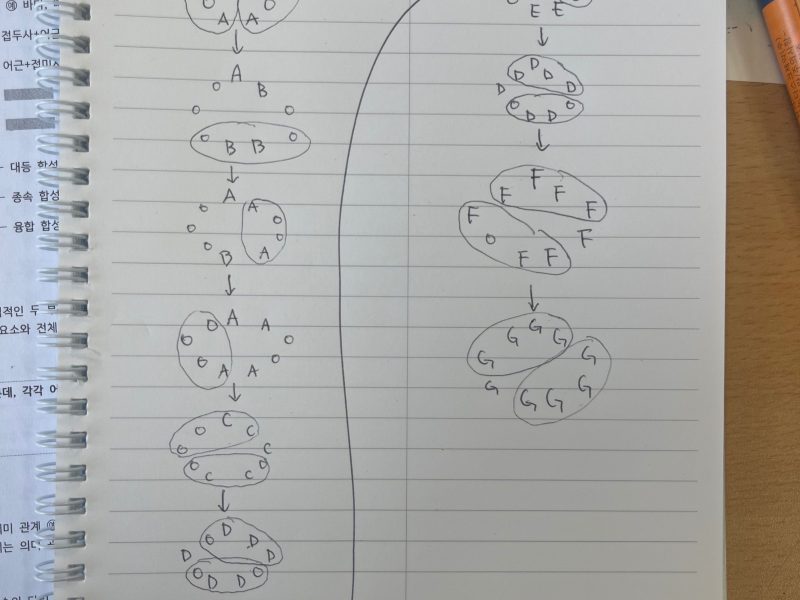 접두사+어근
어근+접미사
대등 합성
종속 합성
융합 합성
적인 두
요소와 전체
데, 각각 어
미 관계
는 의미
A A
↓
A
O B
O O
O B B O
↓
A
O A O
O O
O B A
↓
O A A
O O
O A A O
↓
O C C
O C
O C C O
↓
O D D
D D
O D D O
E E
↓
D D D D
D
O D D O
↓
F F F F
F F
O F F
↓
G G G G
G G
G G G G